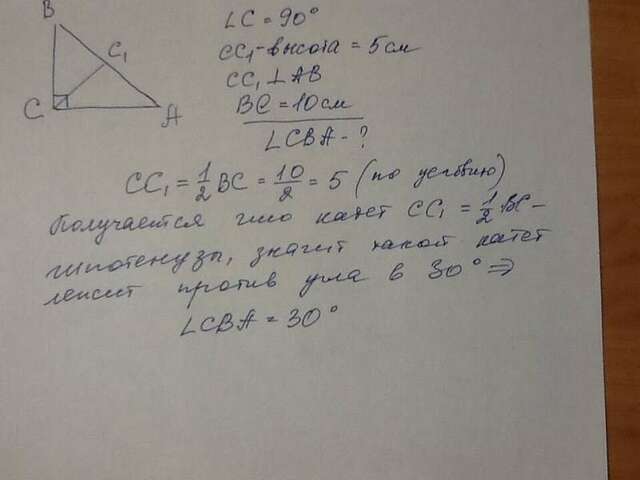 B
C₁
C
A
∠C = 90°
CC₁ - высота = 5см
CC₁ ⊥ AB
BC = 10см
∠CBA - ?
CC₁ = 1/2 BC = 10/2 = 5 (по условию)
Получается что катет CC₁ = 1/2 BC -
гипотенузы, значит такой катет
лежит против угла в 30° ⇒
∠CBA = 30°